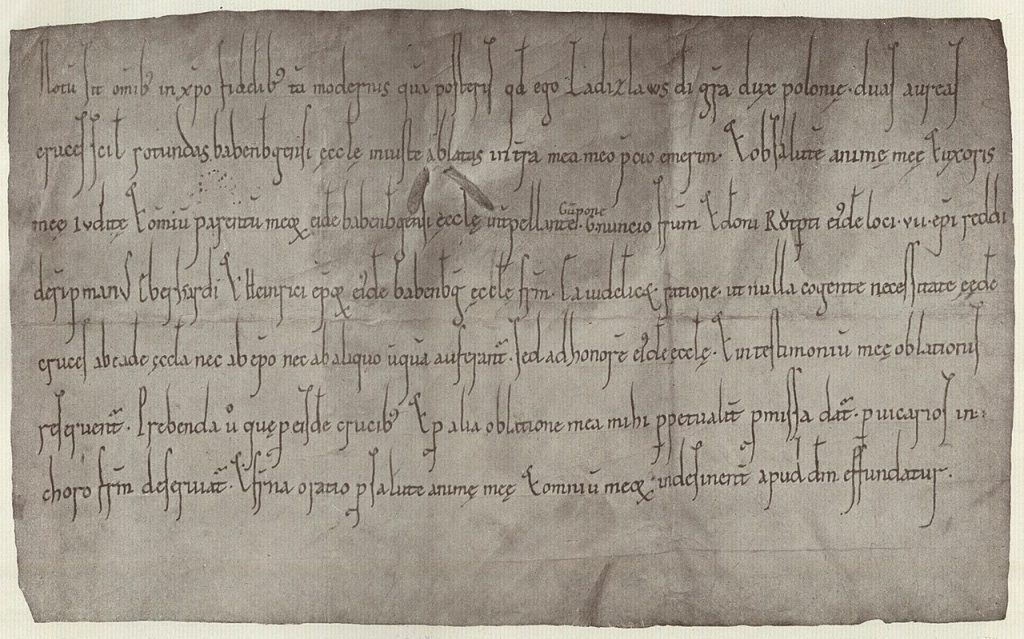 Notū sit omib' in xp̄o fidelib' tā modernis quā posteris qđ ego Ladizlaws dī grā dux polonię · duas aureas
cruces scil rotundas babenbgensi ęccłe iniuste ablatas in t̄ra mea meo p̄cio emerim · & ob salutē animę meę & uxoris
meę Iuditę & omiū parentū meoꝝ eidē babenbgensi ęccłe int̄pellante · Gūpone nuncio frūm & doni Rotpti eiđe loci · vii · ep̄i reddi
derim p manus Eberhardi & Heinrici ep̄oꝝ eiđe babenbg ęccłe fr̄m · Ea uidelicet ratione · ut nulla cogente necessitate ęędē
cruces ab eadē ęccła nec ab ep̄o nec ab aliquo ūquā auferant̄ · sed ad honorē eiđe ęccłę · & in testimoniū meę oblationis
reseruent̄ · Prebenda ū quę p eisdē crucib' & p alia oblatione mea mihi ppetualit̄ pmissa dat̄ · p uicarios in
choro fr̄m deseruiat̄ · & fr̄na oratio p salute animę meę & omniū meoꝝ indesinent̄ apud dm̄ effundatur ·